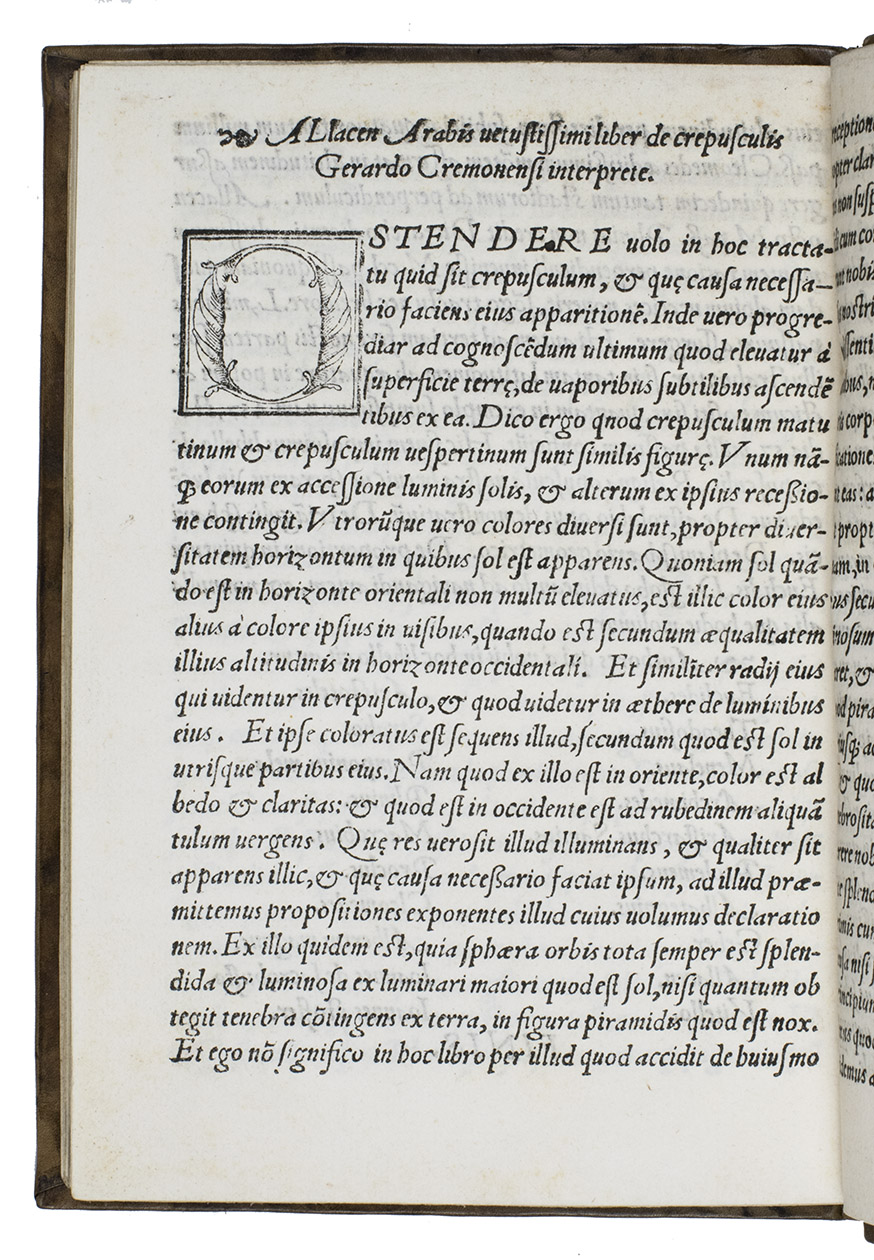 ALlacen Arabis uetustissimi liber de crepusculis
Gerardo Cremonensi interprete.
OSTENDERE uolo in hoc tracta-
tu quid sit crepusculum, & quę causa necessa-
rio faciens eius apparitionẽ. Inde uero progre-
diar ad cognoscẽdum ultimum quod eleuatur à
superficie terrę, de uaporibus subtilibus ascendẽ
tibus ex ea. Dico ergo qnod crepusculum matu
tinum & crepusculum uespertinum sunt similis figurę. Vnum nã-
ꝗ eorum ex accessione luminis solis, & alterum ex ipsius recessio-
ne contingit. Vtrorũque uero colores diuersi sunt, propter diuer-
sitatem horizontum in quibus sol est apparens. Quoniam sol quã-
do est in horizonte orientali non multũ eleuatus, est illic color eius
alius à colore ipsius in uisibus, quando est secundum æqualitatem
illius altitudinis in horizonte occidentali. Et similiter radij eius
qui uidentur in crepusculo, & quod uidetur in æthere de luminibus
eius. Et ipse coloratus est sequens illud, secundum quod est sol in
utrisque partibus eius. Nam quod ex illo est in oriente, color est al
bedo & claritas: & quod est in occidente est ad rubedinem aliquã
tulum uergens. Quę res uero sit illud illuminans, & qualiter sit
apparens illic, & quę causa necessario faciat ipsum, ad illud præ-
mittemus propositiones exponentes illud cuius uolumus declaratio
nem. Ex illo quidem est, quia sphæra orbis tota semper est splen-
dida & luminosa ex luminari maiori quod est sol, nisi quantum ob
tegit tenebra cõtingens ex terra, in figura piramidis quod est nox.
Et ego nõ significo in hoc libro per illud quod accidit de huiusmo